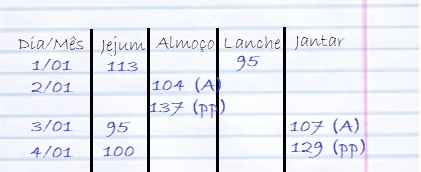 Dia/Mês Jejum Almoço Lanche Jantar
1/01 113 95
2/01 104 (A)
137 (pp)
3/01 95 107 (A)
4/01 100 129 (pp)